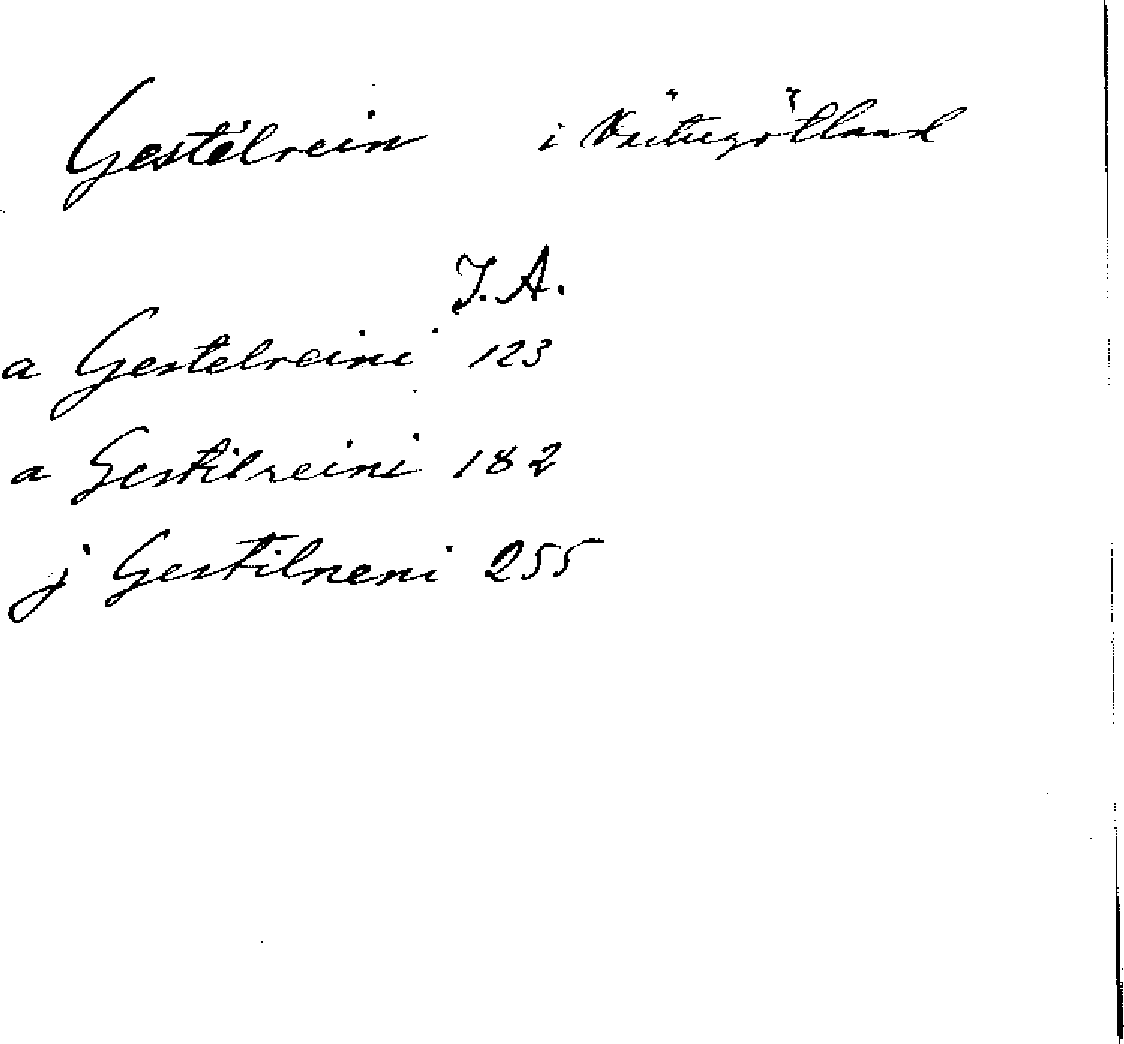 Gestilrein i Västergötland
J. A.
a Gestelreini 123
a Gestilreini 182
j Gestilreni 255